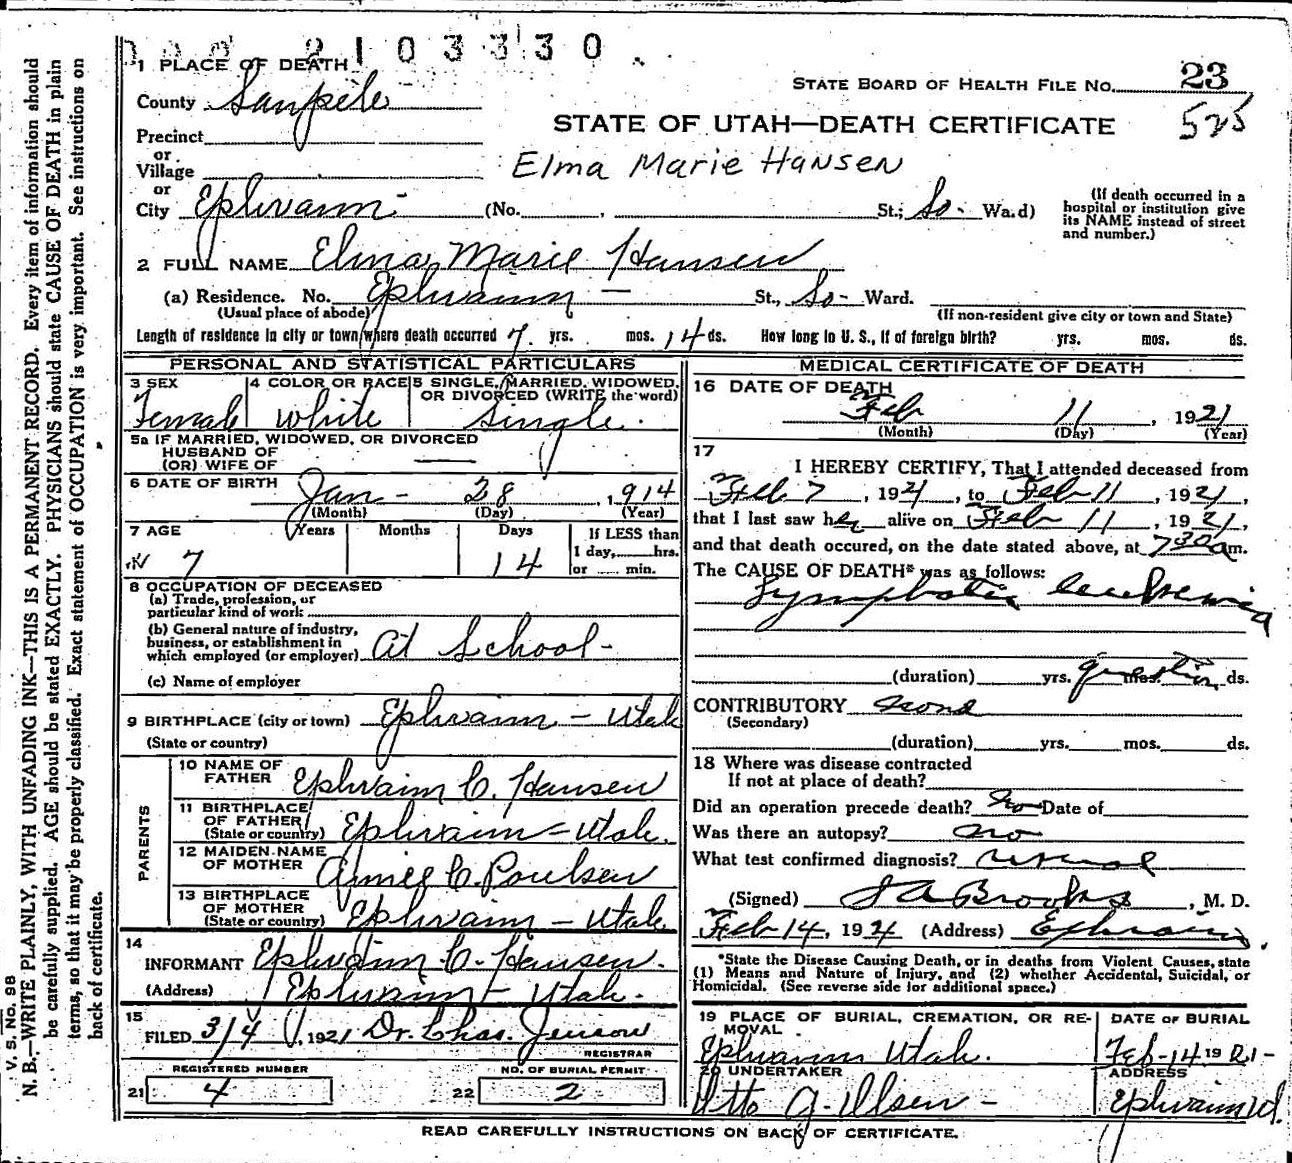 2103330
1 PLACE OF DEATH
STATE BOARD OF HEALTH FILE NO. 23
County Sanpete
525
STATE OF UTAH—DEATH CERTIFICATE
Precinct
or
Village
Elma Marie Hansen
or
City Ephraim (No. , St.; So. Wa.d)
(If death occurred in a hospital or institution give its NAME instead of street and number.)
2 FULL NAME Elma Marie Hansen
(a) Residence. No. Ephraim — St., So- Ward.
(Usual place of abode)
(If non-resident give city or town and State)
Length of residence in city or town where death occurred 7 yrs. mos. 14 ds. How long in U. S., if of foreign birth? yrs. mos. ds.
PERSONAL AND STATISTICAL PARTICULARS
3 SEX
Female
4 COLOR OR RACE
White
5 SINGLE, MARRIED, WIDOWED, OR DIVORCED (WRITE the word)
Single.
5a IF MARRIED, WIDOWED, OR DIVORCED
HUSBAND OF
(OR) WIFE OF
6 DATE OF BIRTH Jan - 28, 1914
(Month) (Day) (Year)
7 AGE Years Months Days
7 14
If LESS than
1 day,......hrs.
or ...... min.
8 OCCUPATION OF DECEASED
(a) Trade, profession, or
particular kind of work
(b) General nature of industry,
business, or establishment in
which employed (or employer) At School -
(c) Name of employer
9 BIRTHPLACE (city or town) Ephraim - Utah
(State or country)
PARENTS
10 NAME OF FATHER Ephraim C. Hansen
11 BIRTHPLACE OF FATHER
(State or country) Ephraim - Utah.
12 MAIDEN NAME OF MOTHER C. Poulsen
13 BIRTHPLACE OF MOTHER
(State or country) Ephraim - Utah.
14
INFORMANT Ephraim C. Hansen.
(Address) Ephraim - Utah.
15
FILED 3/4, 1921 Dr. Chas. Jenson
REGISTRAR
REGISTERED NUMBER
21 4
NO. OF BURIAL PERMIT
22 2
MEDICAL CERTIFICATE OF DEATH
16 DATE OF DEATH
Feb 11, 1921
(Month) (Day) (Year)
17
I HEREBY CERTIFY, That I attended deceased from
Feb 7, 1921, to Feb 11, 1921,
that I last saw her alive on Feb 11, 1921,
and that death occured, on the date stated above, at 7 30 am.
The CAUSE OF DEATH* was as follows:
Lymphatic leukemia
(duration) yrs. mos. ds.
question
CONTRIBUTORY None
(Secondary)
(duration) yrs. mos. ds.
18 Where was disease contracted
If not at place of death?
Did an operation precede death? No Date of
Was there an autopsy? no
What test confirmed diagnosis? usual
(Signed) J A Brooks, M. D.
Feb 14, 1921 (Address) Ephraim.
*State the Disease Causing Death, or in deaths from Violent Causes, state
(1) Means and Nature of Injury, and (2) whether Accidental, Suicidal, or
Homicidal. (See reverse side for additional space.)
19 PLACE OF BURIAL, CREMATION, OR REMOVAL
Ephraim Utah.
DATE OF BURIAL
Feb-14 1921-
20 UNDERTAKER
Otto G. Olsen -
ADDRESS
Ephraim Ut.
READ CAREFULLY INSTRUCTIONS ON BACK OF CERTIFICATE.
V. S. No. 98
N. B.—WRITE PLAINLY, WITH UNFADING INK—THIS IS A PERMANENT RECORD. Every item of information should
be carefully supplied. AGE should be stated EXACTLY. PHYSICIANS should state CAUSE OF DEATH in plain
terms, so that it may be properly classified. Exact statement of OCCUPATION is very important. See instructions on
back of certificate.